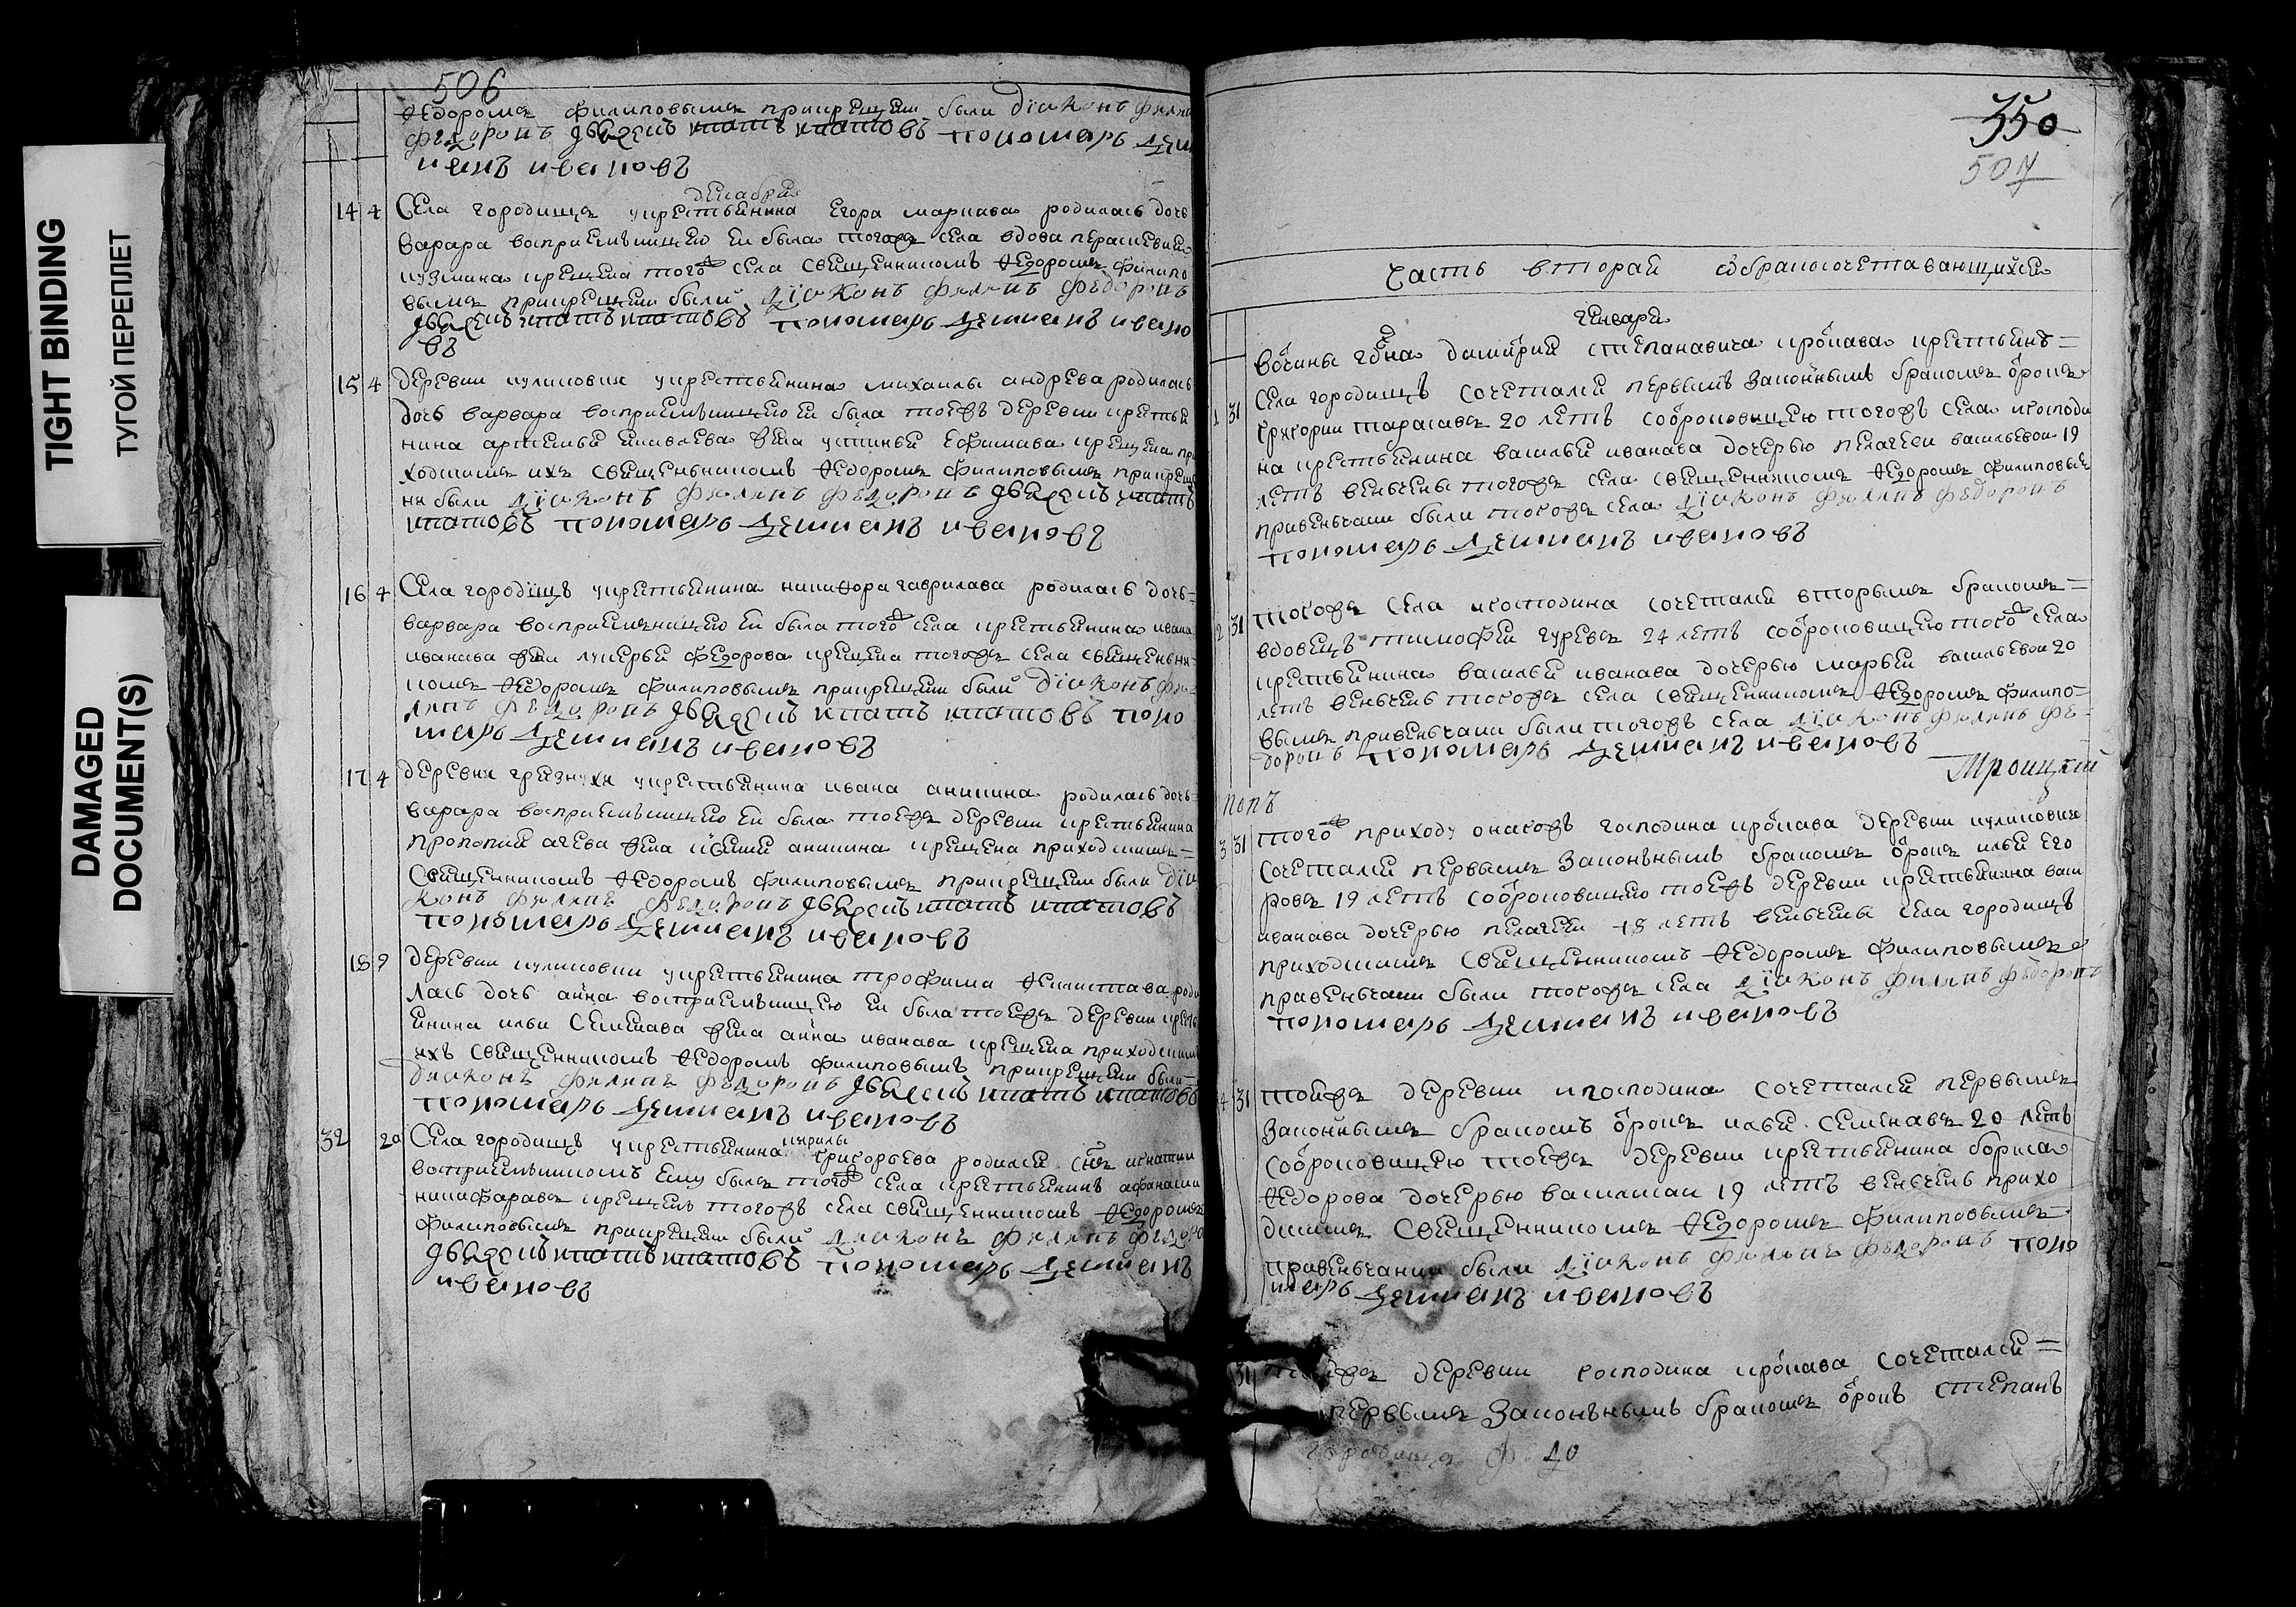 TIGHT BINDING
ТУГОЙ ПЕРЕПЛЕТ
DAMAGED
DOCUMENT(S)
506
Ѳедоромъ Филиповымъ при крещеніи были діаконъ
Федоровъ пономарь
иванъ ивановъ
декабря
14 4 Села городищъ у крестьянина Егора маркава родилась дочь
варара восприемъницею еи была тогожъ села вдова
кузмина крещена того села священникомъ Ѳедоромъ Филипо
вымъ при крещеніи были діаконъ Филипъ Федоровъ
пономарь Демианъ ивано
въ
15 4 деревни куликовки у крестьянина михаилы андрева родилась
дочь варвара восприемъницею еи была тоежъ деревни крестья
нина артемья жена устинья Ефимава крещена при
ходскимъ ихъ священникомъ Ѳедоромъ Филиповымъ при креще
ни были діаконъ Филипъ Федоровъ
пономарь Демианъ ивановъ
16 4 Села городищъ у крестьянина никиѳора гаврилава родилась дочь
варвара восприемницею еи была того села крестьянина ивана
иванава жена лукерья Федорова крещена тогожъ села священъни
комъ Ѳедоромъ Филиповымъ при крещеніи были діаконъ Фи
липъ Федоровъ поно
марь Демианъ ивановъ
17 4 деревни грязнухи у крестьянина ивана аникина родилась дочь
варара восприемъницею еи была тоежъ деревни крестьянина
жена аникина крещена приходскимъ
Священникомъ Ѳедоромъ Филиповымъ при крещеніи были діа
конъ Филипъ Федоровъ
пономарь Демианъ ивановъ
18 9 деревни куликовки у крестьянина трофима родi
лась дочь анна восприемъницею еи была тоежъ деревни кресть
янина ильи Семенава жена анна иванава крещена приходским
ихъ священникомъ Ѳедоромъ Филиповымъ при крещеніи были
діаконъ Филипъ Федоровъ
пономарь Демианъ ивановъ
32 20 Села городищъ у крестьянина кирилы григорьева родился сынъ игнатии
восприемъникомъ ему былъ того села крестьянинъ афанасии
никифаравъ крещенъ тогожъ села священникомъ Ѳедоромъ
Филиповымъ при крещеніи были діаконъ Филипъ Федоро
пономарь Демианъ
ивановъ
350
507
Часть вторая о бракосочетавающихся
Генваря
вочины гдна димитрия степанавича кропава крестьянъ
1 31 Села городищъ сочетался первымъ законнымъ бракомъ отрокъ
григории тарасавъ 20 летъ со отроковицею тогожъ села и господи
на крестьянина василья иванава дочерью пелагеи васильевои 19
летъ венъчены тогожъ села священникомъ Ѳедоромъ Филиповы
при венъчаніи были тогожъ села діаконъ Филипъ Федоровъ
пономарь Демианъ ивановъ
2 31 тогожъ села и господина сочетался вторымъ бракомъ
вдовецъ тимофеи гуревъ 24 летъ со отроковицею того села
крестьянина василья иванава дочерью марьеи васильевои 20
летъ венъченъ тогожъ села священникомъ Ѳедоромъ Филипо
вымъ при венъчаніи были тогожъ села діаконъ Филипъ Фе
доровъ пономарь Демианъ ивановъ
Троицкий
попъ
3 31 того приходу оногожъ господина кропава деревни куликовки
сочетался первымъ законънымъ бракомъ отрокъ илья его
ровъ 19 летъ со отроковицею тоежъ деревни крестьянина васи
иванава дочерью пелагеи 18 летъ венъчены села городищъ
приходскимъ священникомъ Ѳедоромъ Филиповымъ
при венъчаніи были тогожъ села діаконъ Филипъ Федоровъ
пономарь Демианъ ивановъ
4 31 тоижъ деревни и господина сочетался первымъ
законнымъ бракомъ отрокъ илья Семенавъ 20 летъ
со отроковицею тоежъ деревни крестьянина бориса
Ѳедорова дочерью 19 летъ венъченъ прихо
дскимъ священникомъ Ѳедоромъ Филиповымъ
при венъчании были діаконъ Филипъ Федоровъ поно
марь Демианъ ивановъ
31 деревни господина кропава сочетался
первымъ законънымъ бракомъ отрокъ степанъ